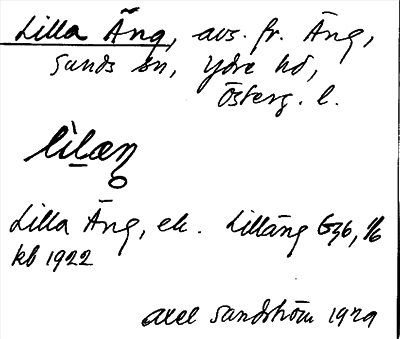 Lilla Äng, avs. fr. Äng,
Sunds sn, Ydre hd,
Österg. l.
lìlæŋ
Lilla Äng, el. Lilläng Gzb, 1/6
kb 1922
Axel Sandström 1929